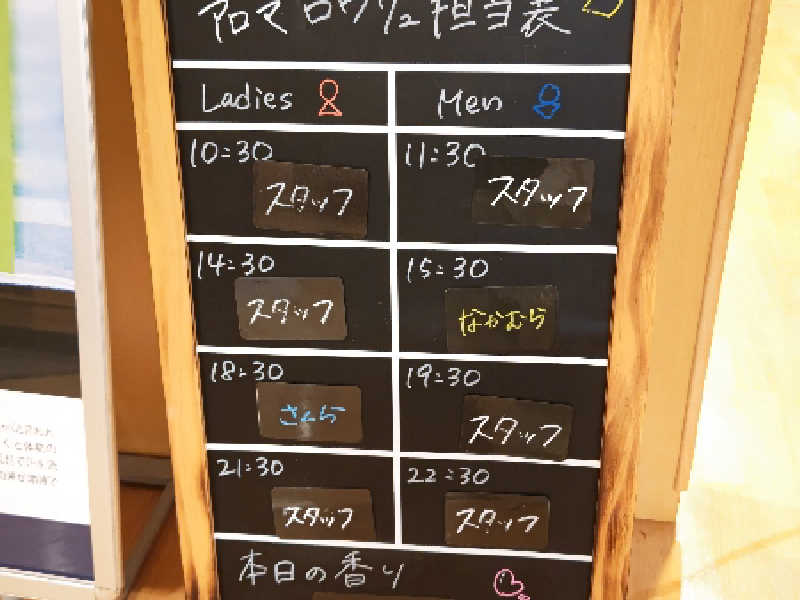 アロマロウリュ担当表
Ladies Men
10:30 11:30
スタッフ スタッフ
14:30 15:30
スタッフ なかむら
18:30 19:30
さくら スタッフ
21:30 22:30
スタッフ スタッフ
本日の香り